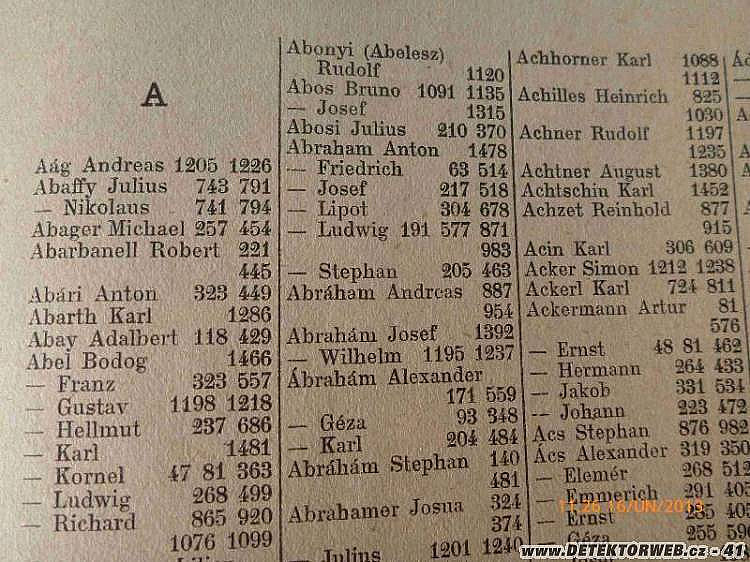 A
Aág Andreas 1205 1226
Abaffy Julius 743 791
— Nikolaus 741 794
Abager Michael 257 454
Abarbanell Robert 221
445
Abári Anton 323 449
Abarth Karl 1286
Abay Adalbert 118 429
Abel Bodog 1466
— Franz 323 557
— Gustav 1198 1218
— Hellmut 237 686
— Karl 1481
— Kornel 47 81 363
— Ludwig 268 499
— Richard 865 920
1076 1099
Abonyi (Abelesz)
Rudolf 1120
Abos Bruno 1091 1135
— Josef 1315
Abosi Julius 210 370
Abraham Anton 1478
— Friedrich 63 514
— Josef 217 518
— Lipot 304 678
— Ludwig 191 577 871
983
— Stephan 205 463
Abráham Andreas 887
954
Abrahám Josef 1392
— Wilhelm 1195 1237
Ábrahám Alexander
171 559
— Géza 93 348
— Karl 204 484
Abráhám Stephan 140
481
Abrahamer Josua 324
374
— Julius 1201 1240
Achhorner Karl 1088
1112
Achilles Heinrich 825
1030
Achner Rudolf 1197
1235
Achtner August 1380
Achtschin Karl 1452
Achzet Reinhold 877
915
Acin Karl 306 609
Acker Simon 1212 1238
Ackerl Karl 724 811
Ackermann Artur 81
576
— Ernst 48 81 462
— Hermann 264 433
— Jakob 331 534
— Johann 223 472
Acs Stephan 876 982
Ács Alexander 319 350
— Elemér 268 512
— Emmerich 291 405
— Ernst 285 405
— Géza 255 590
www.DETEKTORWEB.cz - 41